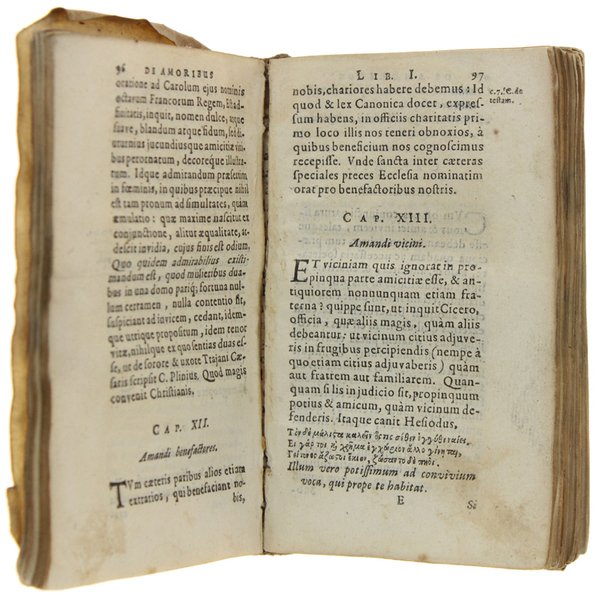 96 DE AMORIBUS
oratione ad Carolum ejus nominis
octavum Francorum Regem, Et ad-
finitatis, inquit, nomen dulce, atque
suave, blandum atque fidum, sed di-
uturnius jucundiusque amicitiæ
bus perornatum, decoreque illustra-
tum. Idque admirandum præsertim
in fœminis, in quibus præcipue nihil
est tam pronum ad simultates, quàm
æmulatio: quæ maxime nascitur ex
conjunctione, alitur æqualitate, ar-
descit invidia, cujus finis est odium,
Quo quidem admirabilius existi-
mandum est, quod mulieribus dua-
bus in una domo pariq; fortuna nul-
lum certamen, nulla contentio sit,
suspiciant ad invicem, cedant, idem-
que utrique propositum, idem tenor
vitæ, nihilque ex quo sentias duas es-
se, ut de sorore & uxore Trajani Cæ-
saris scripsit C. Plinius. Quod magis
convenit Christianis.
CAP. XII.
Amandi benefactores.
TVm cæteris paribus alios etiam
extrarios, qui benefaciant no-
bis,
LIB. I. 97
nobis, chariores habere debemus: Id
quod & lex Canonica docet, expres-
sum habens, in officiis charitatis pri-
mo loco illis nos teneri obnoxios, à
quibus beneficium nos cognoscimus
recepisse. Vnde sancta inter cæteras
speciales preces Ecclesia nominatim
orat pro benefactoribus nostris.
c. 7. C. de
testam.
CAP. XIII.
Amandi vicini.
ET viciniam quis ignorat in pro-
pinqua parte amicitiæ esse, & an-
tiquiorem nonnunquam etiam fra-
terna? quippe sunt, ut inquit Cicero,
officia, quæ aliis magis, quàm aliis
debeantur: ut vicinum citius adjuve-
ris in frugibus percipiendis (nempe à
quo etiam citius adjuvaberis) quàm
aut fratrem aut familiarem. Quan-
quam si lis in judicio sit, propinquum
potius & amicum, quàm vicinum de-
fenderis. Itaque canit Hesiodus,
Τὸν δὲ μάλιστα καλεῖν ὅστις σέθεν ἐγγύθι ναίει,
Εἰ γάρ τοι καὶ χρῆμα ἐγχώριον ἄλλο γένηται,
Γείτονες ἄζωστοι ἔκιον, ζώσαντο δὲ πηοί.
Illum vero potissimum ad convivium
voca, qui prope te habitat.
E Si